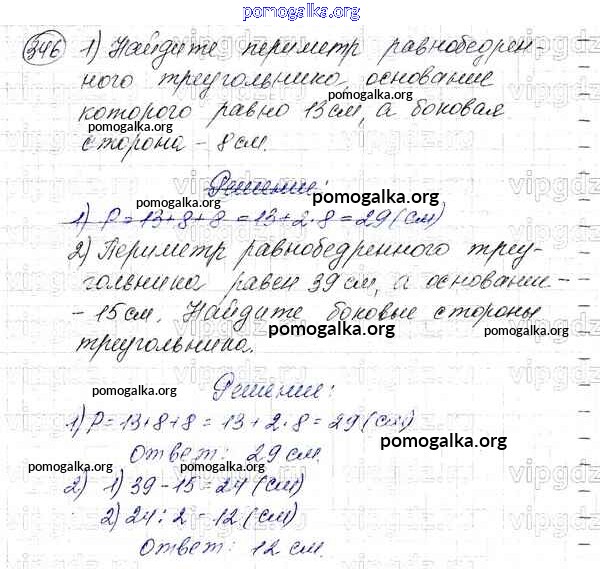 pomogalka.org
346 1) Найдите периметр равнобедрен-
ного треугольника, основание
pomogalka.org
которого равно 13 см, а боковая
pomogalka.org
сторона - 8 см.
Решение:
pomogalka.org
1) P = 13+8+8 = 13+2·8 = 29 (см)
2) Периметр равнобедренного треу-
гольника равен 39 см, а основание -
- 15 см. Найдите боковые стороны
pomogalka.org
треугольника.
Решение:
pomogalka.org
1) P = 13+8+8 = 13 + 2·8 = 29 (см)
pomogalka.org
Ответ: 29 см.
pomogalka.org pomogalka.org
2) 1) 39 - 15 = 24 (см)
2) 24 : 2 = 12 (см)
pomogalka.org
Ответ: 12 см.
pomogalka.org